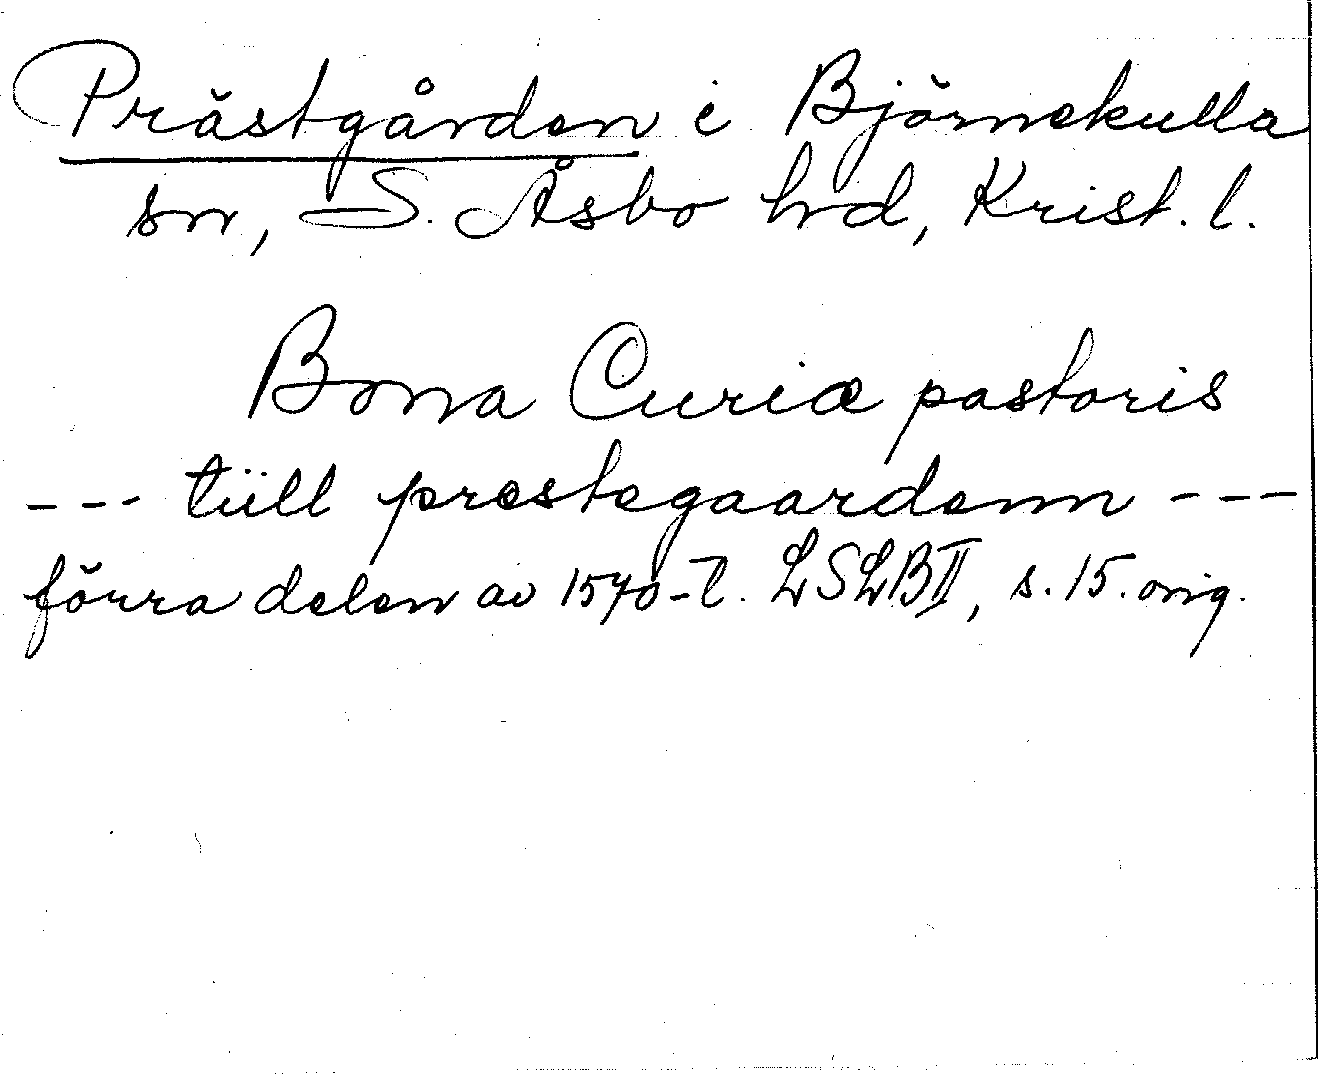 Prästgården i Björnekulla
sn, S. Åsbo hd, Krist. l.
Bona Curiæ pastoris
--- tiill prestegaardenn ---
förra delen av 1570-t. LSLB II, s. 15. orig.